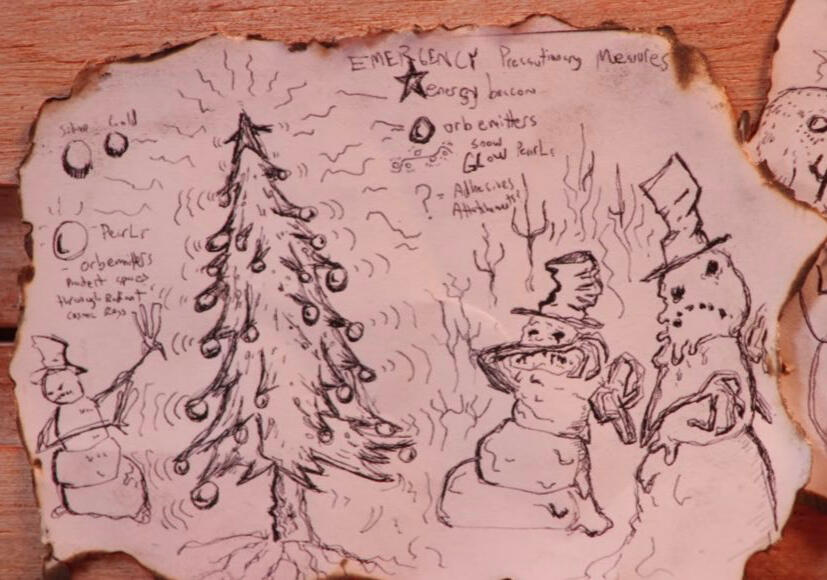 EMERGENCY Precautionary Measures
energy beacon
orb emitters
snow
Glow Pearls
? = Adhesives
Attatchments?
Silver Gold
- Pearls
- orb emitters
Protect space
through Radiant
Cosmic Rays